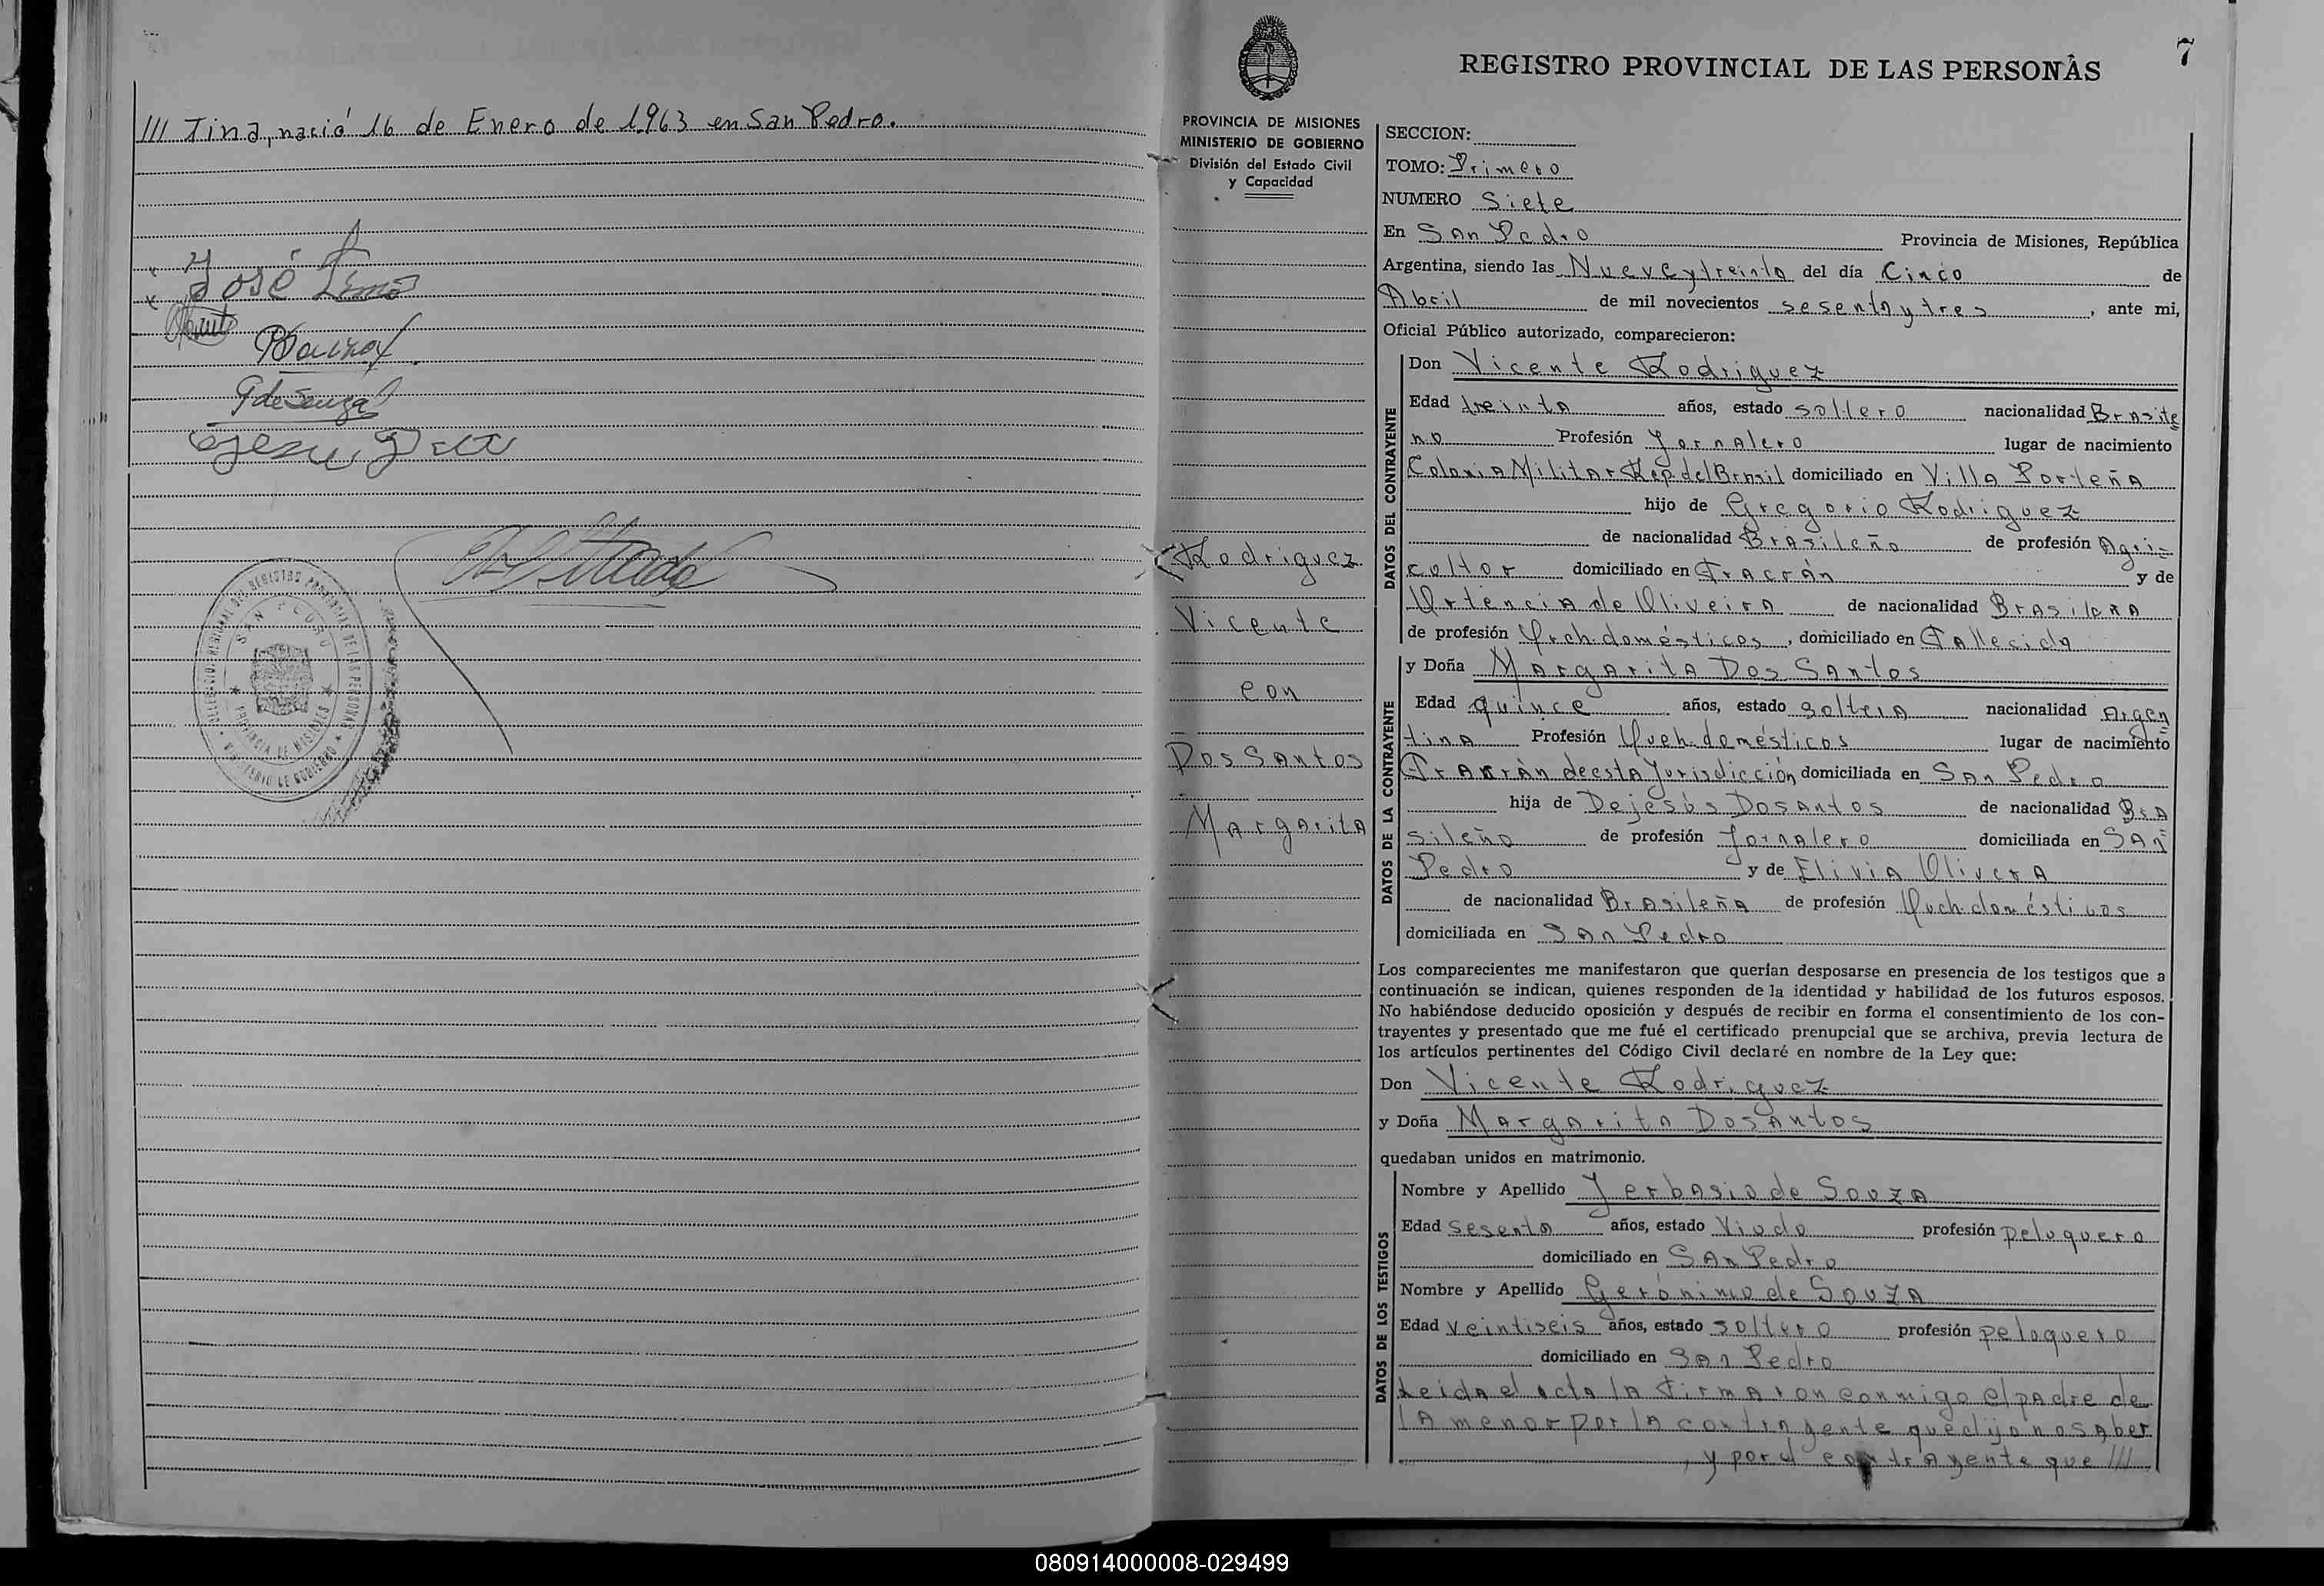 /// Tina, nació 16 de Enero de 1.963 en San Pedro.
José Lima
G de Souza
DELEGACION REGIONAL DEL REGISTRO PROVINCIAL DE LAS PERSONAS
SAN PEDRO
PROVINCIA DE MISIONES
MINISTERIO DE GOBIERNO
7
REGISTRO PROVINCIAL DE LAS PERSONAS
PROVINCIA DE MISIONES
MINISTERIO DE GOBIERNO
División del Estado Civil
y Capacidad
Rodriguez
Vicente
con
Dos Santos
Margarita
SECCION:
TOMO: Primero
NUMERO Siete
En San Pedro Provincia de Misiones, República
Argentina, siendo las Nueve y treinta del día Cinco de
Abril de mil novecientos sesenta y tres, ante mi,
Oficial Público autorizado, comparecieron:
DATOS DEL CONTRAYENTE
Don Vicente Rodriguez
Edad treinta años, estado soltero nacionalidad Brasile
no Profesión Jornalero lugar de nacimiento
Colonia Militar Rep. del Brasil domiciliado en Villa Porteña
hijo de Gregorio Rodriguez
de nacionalidad Brasileño de profesión Agri=
coltor domiciliado en Tracrán y de
Ortencia de Oliveira de nacionalidad Brasilera
de profesión Queh. domésticos, domiciliado en Fallecida
DATOS DE LA CONTRAYENTE
y Doña Margarita Dos Santos
Edad quince años, estado soltera nacionalidad Argen
tina Profesión Queh. domésticos lugar de nacimiento
Tracrán de esta Jurisdicción, domiciliada en San Pedro
hija de Dejesús Dosantos de nacionalidad Bra
sileño de profesión Jornalero domiciliada en San
Pedro y de Elivia Olivera
de nacionalidad Brasileña de profesión Queh. domésticos
domiciliada en San Pedro
Los comparecientes me manifestaron que querían desposarse en presencia de los testigos que a
continuación se indican, quienes responden de la identidad y habilidad de los futuros esposos.
No habiéndose deducido oposición y después de recibir en forma el consentimiento de los con-
trayentes y presentado que me fué el certificado prenupcial que se archiva, previa lectura de
los artículos pertinentes del Código Civil declaré en nombre de la Ley que:
Don Vicente Rodriguez
y Doña Margarita Dosantos
quedaban unidos en matrimonio.
DATOS DE LOS TESTIGOS
Nombre y Apellido Jerbasio de Souza
Edad sesenta años, estado Viudo profesión peluquero
domiciliado en San Pedro
Nombre y Apellido Gerónimo de Souza
Edad veintiseis años, estado soltero profesión peloquero
domiciliado en San Pedro
Leida el acta la firmaron conmigo el padre de
la menor por la contrayente que dijo no saber
y por el contrayente que ///
080914000008-029499